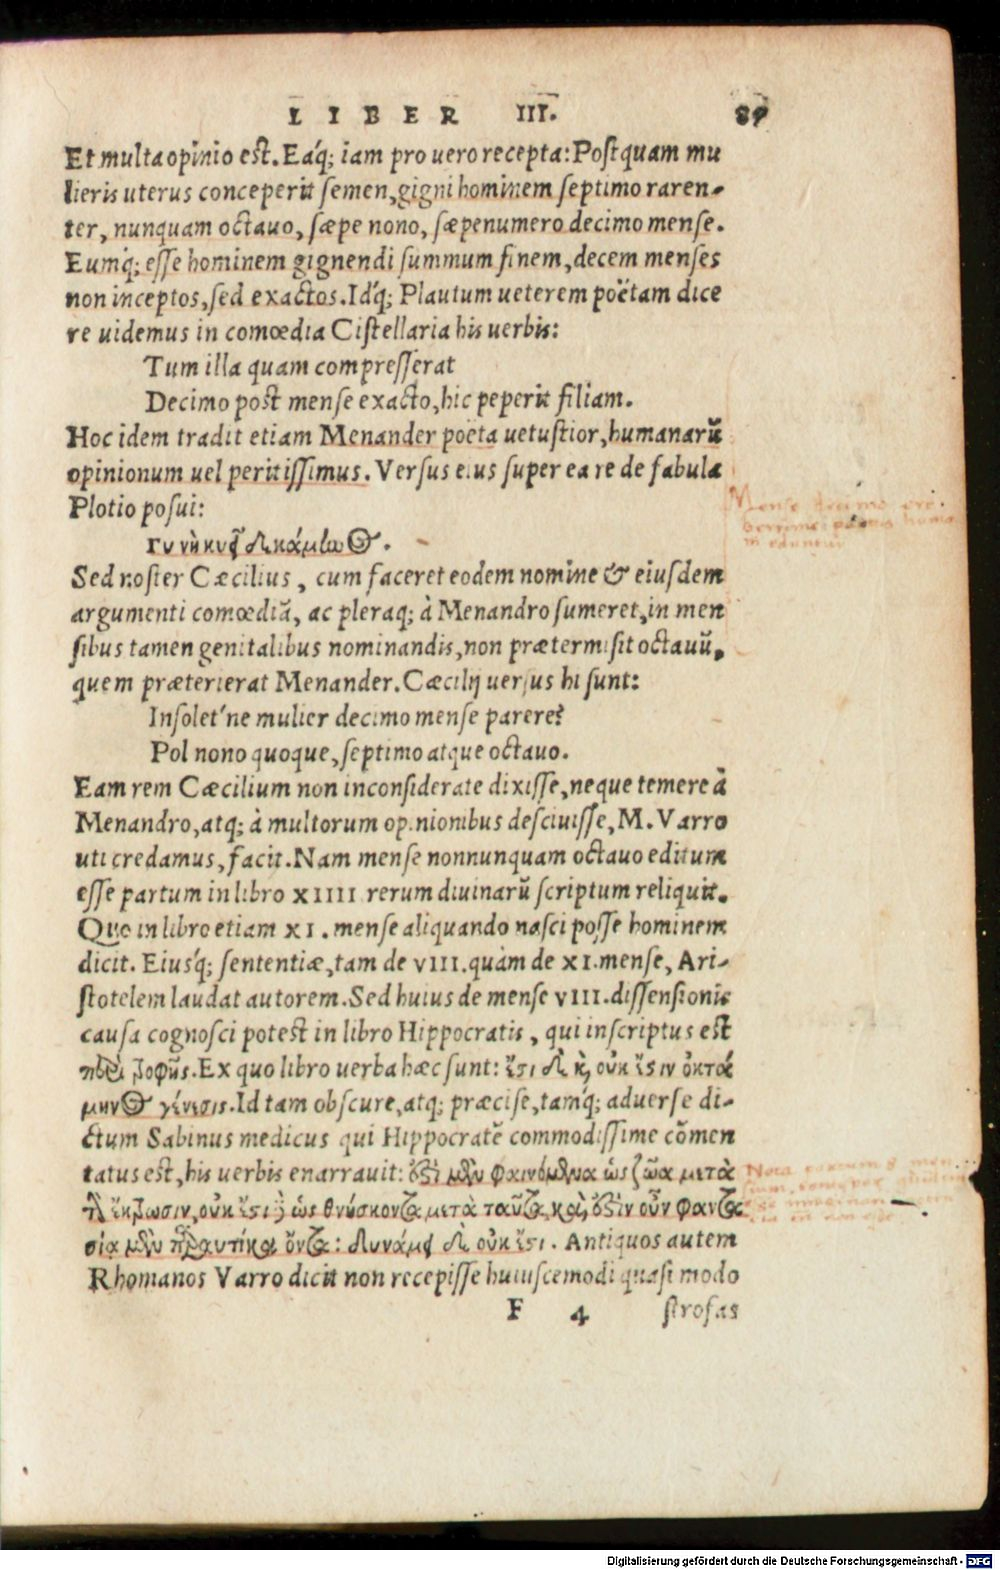 LIBER III. 87
Et multa opinio est. Eáq; iam pro uero recepta: Postquam mu
lieris uterus conceperit semen, gigni hominem septimo raren-
ter, nunquam octauo, sæpe nono, sæpenumero decimo mense.
Eumq́; esse hominem gignendi summum finem, decem menses
non inceptos, sed exactos. Idq́; Plautum ueterem poëtam dice
re uidemus in comœdia Cistellaria his uerbis:
Tum illa quam compresserat
Decimo post mense exacto, hic peperit filiam.
Hoc idem tradit etiam Menander poëta uetustior, humanarũ
opinionum uel peritissimus. Versus eius super ea re de fabula
Plotio posui:
γυνὴ κυεῖ δεκάμηνος.
Sed noster Cæcilius, cum faceret eodem nomine & eiusdem
argumenti comœdiã, ac pleraq; à Menandro sumeret, in men
sibus tamen genitalibus nominandis, non prætermisit octauũ,
quem præterierat Menander. Cæcilij uersus hi sunt:
Insolet'ne mulier decimo mense parere?
Pol nono quoque, septimo atque octauo.
Eam rem Cæcilium non inconsiderate dixisse, neque temere à
Menandro, atq; à multorum opinionibus desciuisse, M. Varro
uti credamus, facit. Nam mense nonnunquam octauo editum
esse partum in libro XIIII rerum diuinarũ scriptum reliquit.
Quo in libro etiam XI. mense aliquando nasci posse hominem
dicit. Eiusq́; sententiæ, tam de VIII. quàm de XI. mense, Ari-
stotelem laudat autorem. Sed huius de mense VIII. dissensionis
causa cognosci potest in libro Hippocratis, qui inscriptus est
περὶ τροφῆς. Ex quo libro uerba hæc sunt: ἔστι δὲ κ̀, οὐκ ἔστιν ὀκτά
μηνος γένεσις. Id tam obscure, atq; præcise, tamq́; aduerse di-
ctum Sabinus medicus qui Hippocratẽ commodissime cõmen
tatus est, his uerbis enarrauit: ἔστι μὲν φαινόμενα ὡς ζῶα μετὰ
τὴν ἔκτρωσιν, οὐκ ἔστι δὲ ὡς θνήσκοντα μετὰ ταῦτα, καὶ, ἔστιν οὖν φαντα
σία μὲν παραυτίκα ὄντα: δυνάμει δὲ οὐκ ἔστι. Antiquos autem
Rhomanos Varro dicit non recepisse huiuscemodi quasi modo
F 4 strosas
Mense decimo
Digitalisierung gefördert durch die Deutsche Forschungsgemeinschaft - DFG